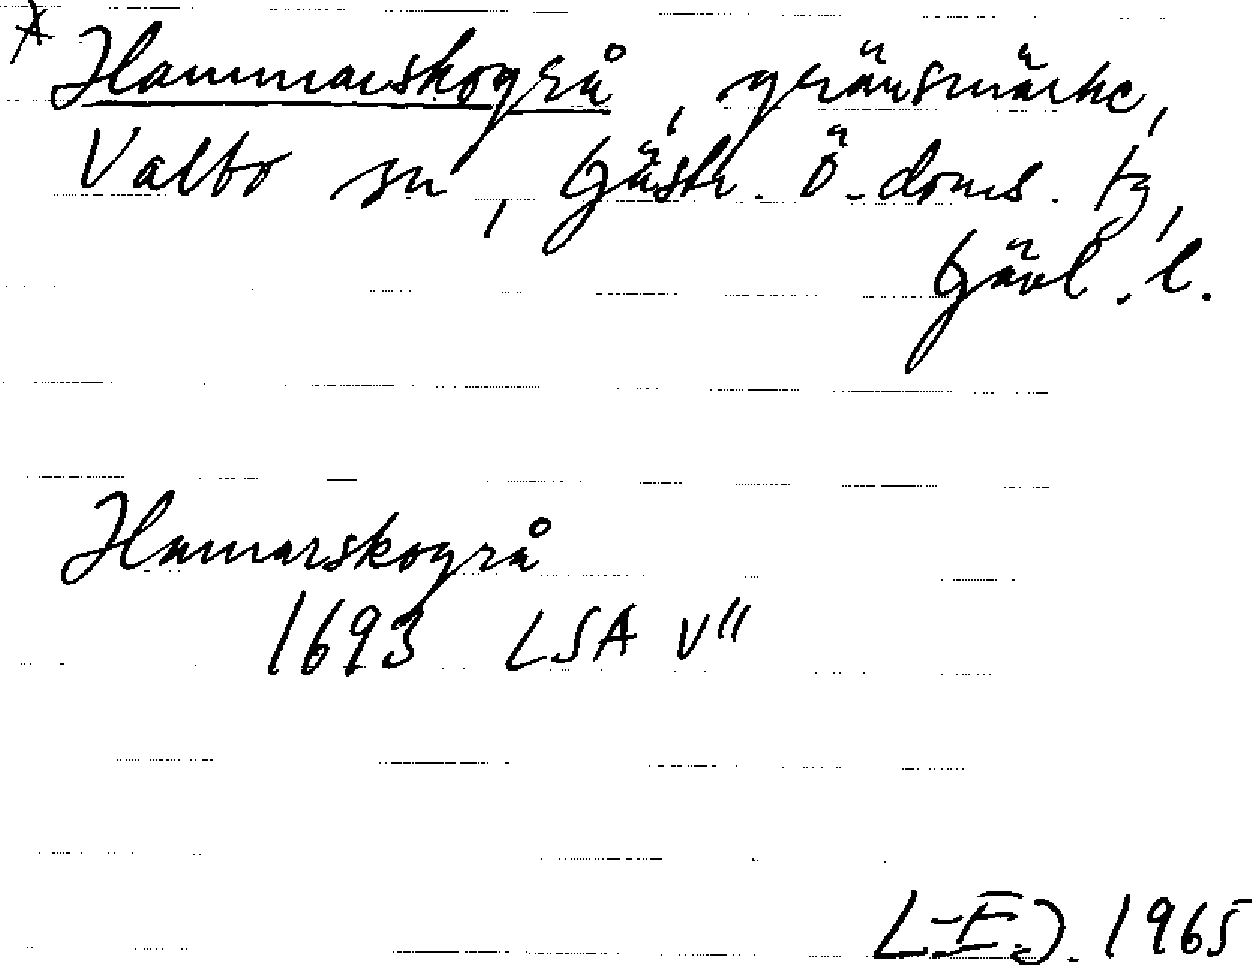 * Hammarskogrå, gränsmärke,
Valbo sn, Gästr. Ö. doms. tg,
Gävl. l.
Hamarskogrå
1693 LSA V"
L-E J. 1965